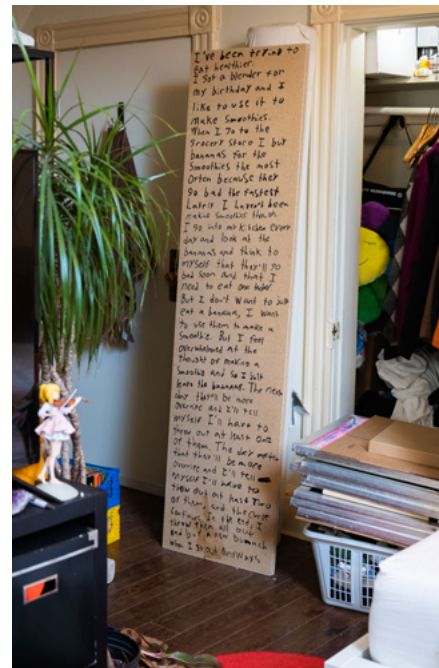 I've been trying to
eat healthier.
I got a blender for
my birthday and I
like to use it to
make smoothies.
When I go to the
grocery store I buy
bananas for the
smoothies the most
often because they
go bad the fastest
Lately I haven't been
making smoothies though.
I go into my kitchen every
day and look at the
bananas and think to
myself that they'll go
bad soon and that I
need to eat one today.
But I don't want to just
eat a banana, I want
to use them to make a
smoothie. But I feel
overwhelmed at the
thought of making a
smoothie and so I just
leave the bananas. The next
day they'll be more
overripe and I'll tell
myself I'll have to
throw out at least one
of them. The day after
that they'll be more
overripe and I'll tell
myself I'll have to
throw out at least two
of them and the cycle
continues. In the end, I
throw them all away
and buy a new bunch
when I go out anyways